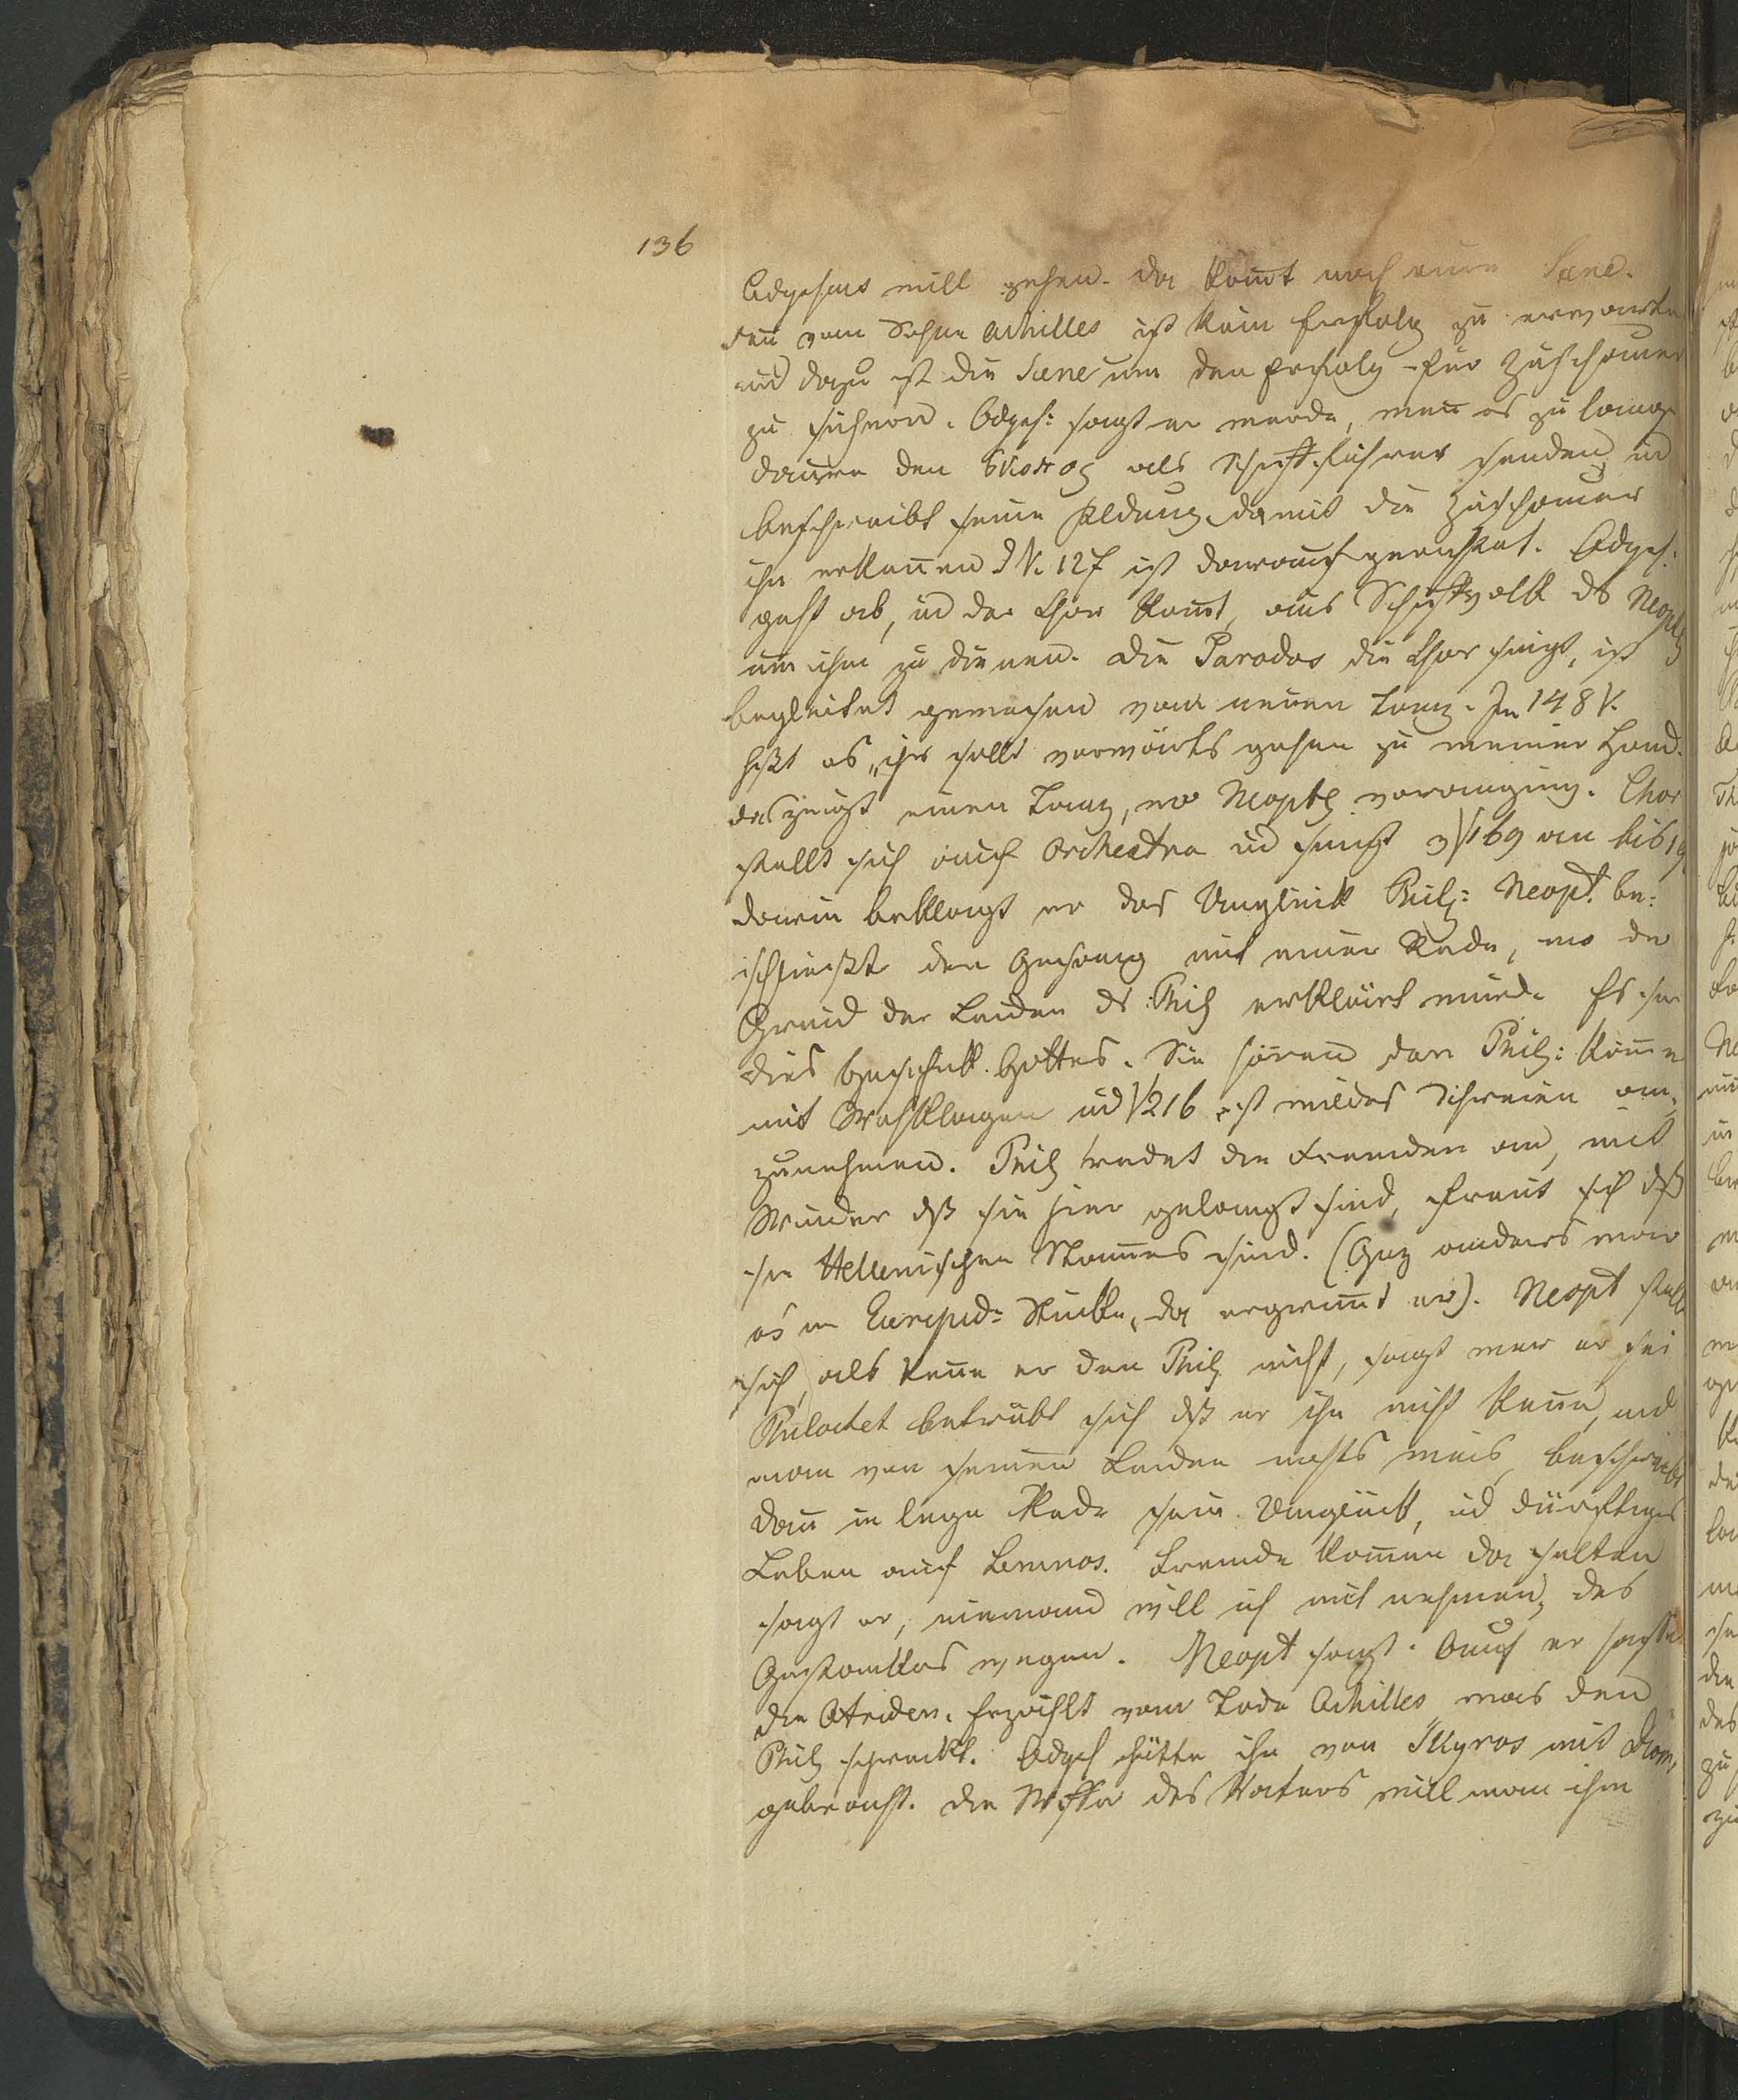 136
Odysseus will gehen. da kom̅t noch eine Scene.
den̅ vom Sohne Achilles ist kein Erfolg zu erwarten
und dazu ist die Scene um den Erfolg für Zuschauer
zu sichern. Odyss: sagt er werde, wen̅ es zu lange
dauere den σκοπος als Schiffsführer senden ud
beschreibt seine Kldung damit die Zuschauer
ihn erken̅en d V. 127 ist darauf gerichtet. Odyss.
geht ab, ud der Chor kom̅t, aus Schiffsvolk ds Neopt
um ihm zu dienen. Die Parodos die Chor singt, ist
begleitet gewesen von einem Tanz. In 148 V.
hßt es, „ihr sollt vorwärts gehen zu meiner Hand.
das zeigt einen Tanz, wo Neopt voranging. Chor
stellt sich auf Orchestra ud singt v V 169 an bis 19
darin beklagt er das Unglück Phil: Neopt. be:
schließt den Gesang mit einer Rede, wo der
Grund der Leiden ds Phil erklärt wurde Es sei
dies Geschick Gottes. Sie hören den Phil: kom̅en
mit Wehklagen ud V 216 ist wildes Schreien an,
zunehmen. Phil redet die Fremden an, mit
Wunder dß sie hier gelangt sind, freut sich dß
sie Hellenischen Stam̅es sind. (Ganz anders war
es in Euripid: Stücke, da ergrim̅t er). Neopt stellt
sich, als ken̅e er den Phil nicht, sagt wer er sei
Philoctet betrübt sich dß er ihn nicht ken̅e, und
man von seinen Leiden nichts weis, beschreibt
dan̅ in langer Rede sein Unglück, ud dürftiges
Leben auf Lemnos. Fremde kom̅en da selten
sagt er, niemand will ihn mit nehmen, des
Gestankes wegen. Neopt sagt: Auch er hasse
die Atriden. Erzählt vom Tode Achilles, was den
Phil schreckt. Odyss hätte ihn von Skyros mit Diom,
gebracht. die Waffen des Vaters will man ihm